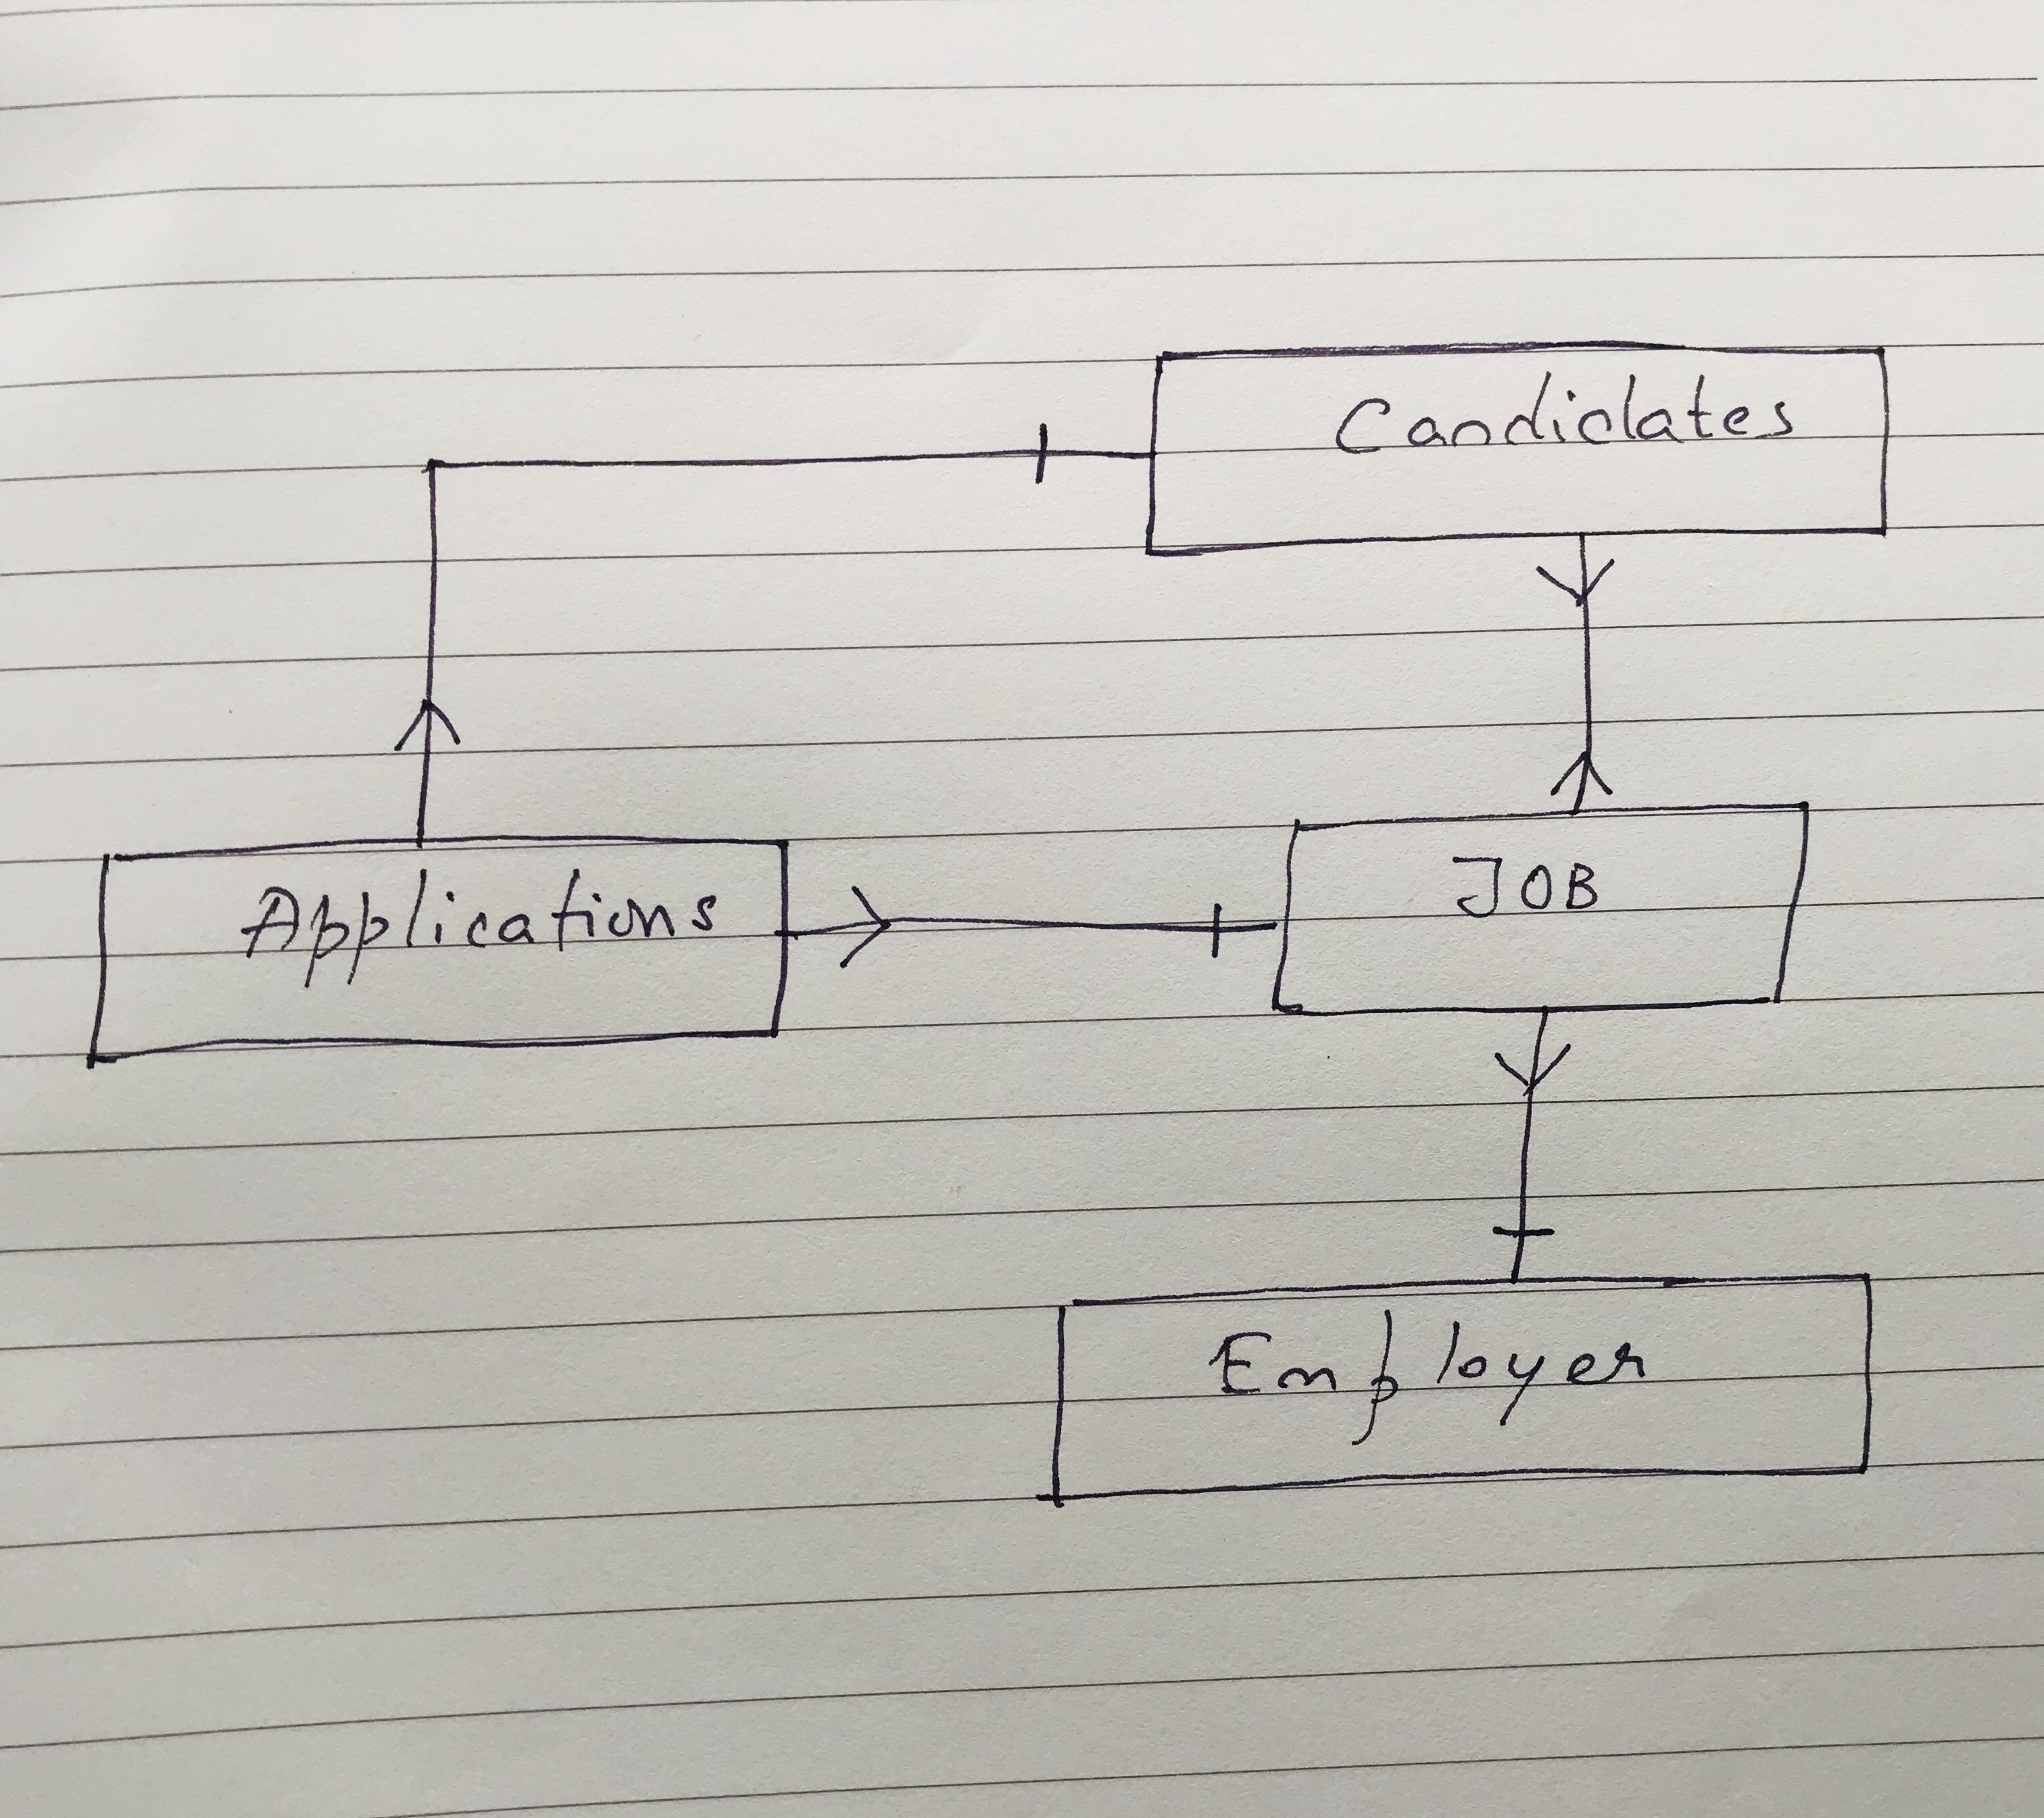 Candidates
Applications
JOB
Employer